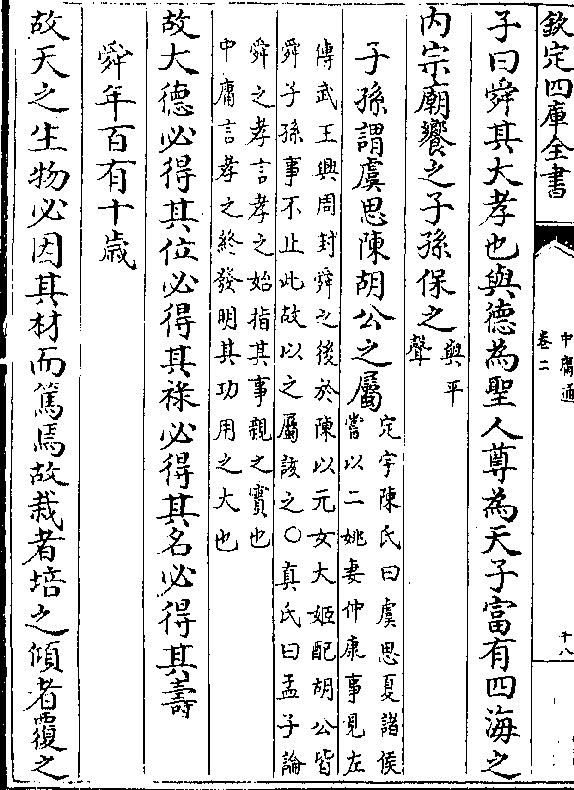 欽定四庫全書
中庸通
卷二
十八
子曰舜其大孝也與德為聖人尊為天子富有四海之
內宗廟饗之子孫保之
與平
聲
子孫謂虞思陳胡公之屬
定宇陳氏曰虞思夏諸侯
嘗以二姚妻仲康事見左
傳武王興周封舜之後於陳以元女大姬配胡公皆
舜子孫事不止此故以之屬該之○真氏曰孟子論
舜之孝言孝之始指其事親之實也
中庸言孝之終發明其功用之大也
故大德必得其位必得其祿必得其名必得其壽
舜年百有十歲
故天之生物必因其材而篤焉故栽者培之傾者覆之